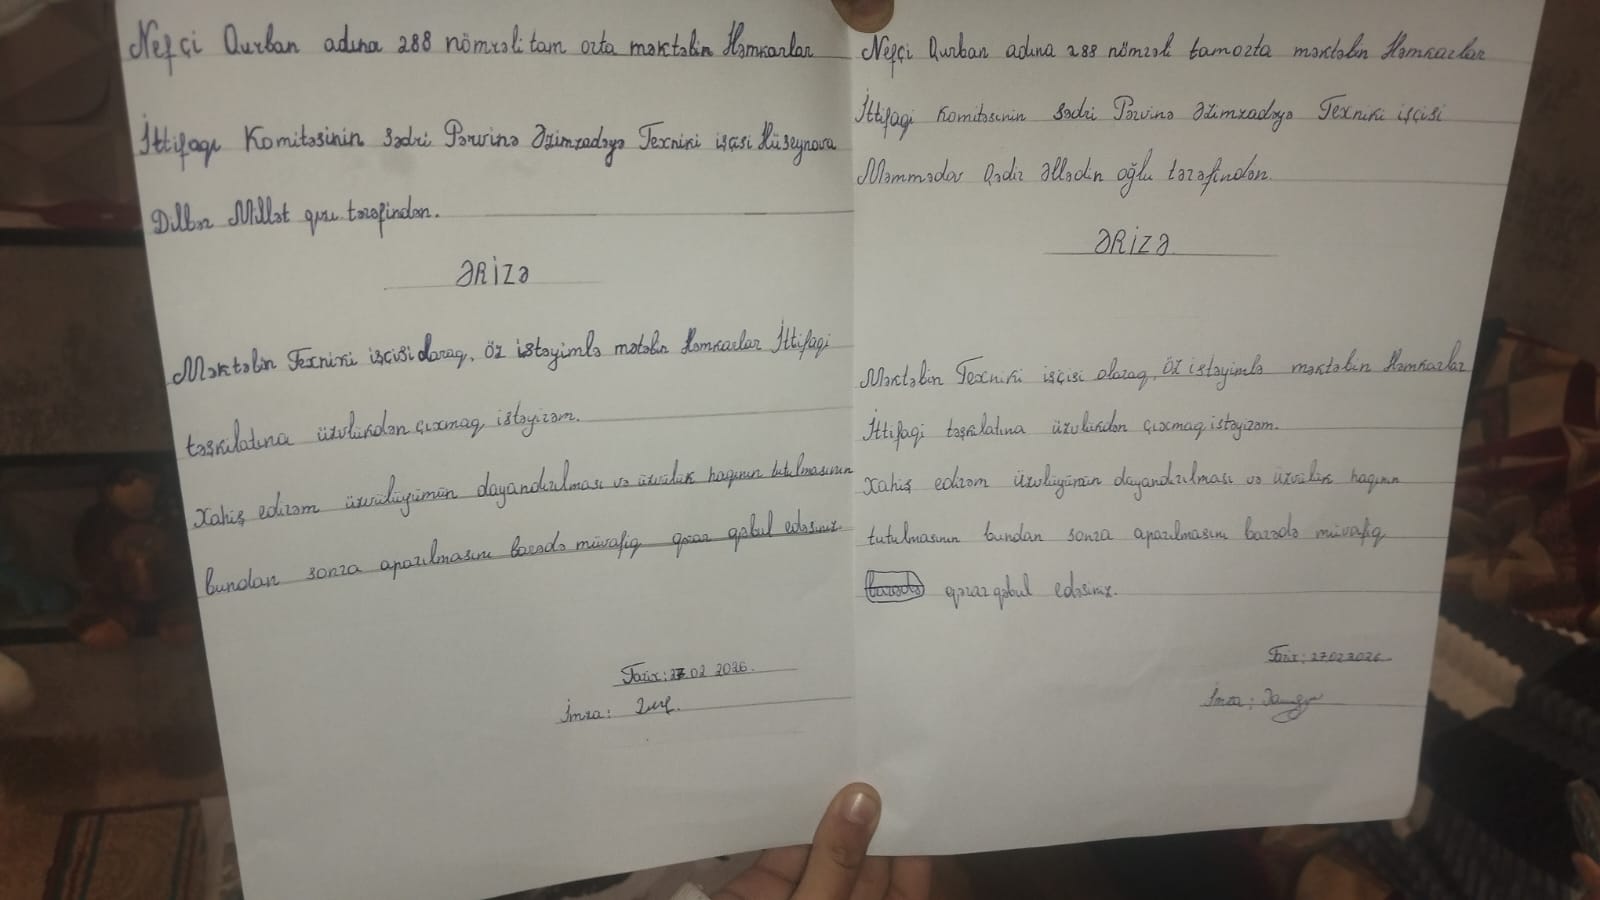 Nefçi Qurban adına 288 nömrəli tam orta məktəbin Həmkarlar
İttifaqı Komitəsinin Sədri Pərvinə Əzimzadəyə Texniki işçisi Hüseynova
Dilbər Millət qızı tərəfindən.
ƏRİZƏ
Məktəbin Texniki işçisi olaraq, öz istəyimlə mətəbin Həmkarlar İttifaqi
təşkilatına üzvlükdən çıxmaq istəyirəm.
Xahiş edirəm üzvülüyümün dayandırılması və üzvülük haqqının tutulmasının
bundan sonra aparılmasını barədə müvafiq qərar qəbul edəsiniz.
Tarix: 27.02 2026.
İmza:
Nefçi Qurban adına 288 nömrəli tam orta məktəbin Həmkarlar
İttifaqi Komitəsinin Sədri Pərvinə Əzimzadəyə Texniki işçisi
Məmmədov Qədir Əllədin oğlu tərəfindən.
ƏRİZƏ
Məktəbin Texniki işçisi olaraq, öz istəyimlə məktəbin Həmkarlar
İttifaqi təşkilatına üzvlükdən çıxmaq istəyirəm.
Xahiş edirəm üzvlüyümün dayandırılması və üzvülük haqının
tutulmasının bundan sonra aparılmasını barədə müvafiq
barədə qərar qəbul edəsiniz.
Tarix: 27.02 2026.
İmza: